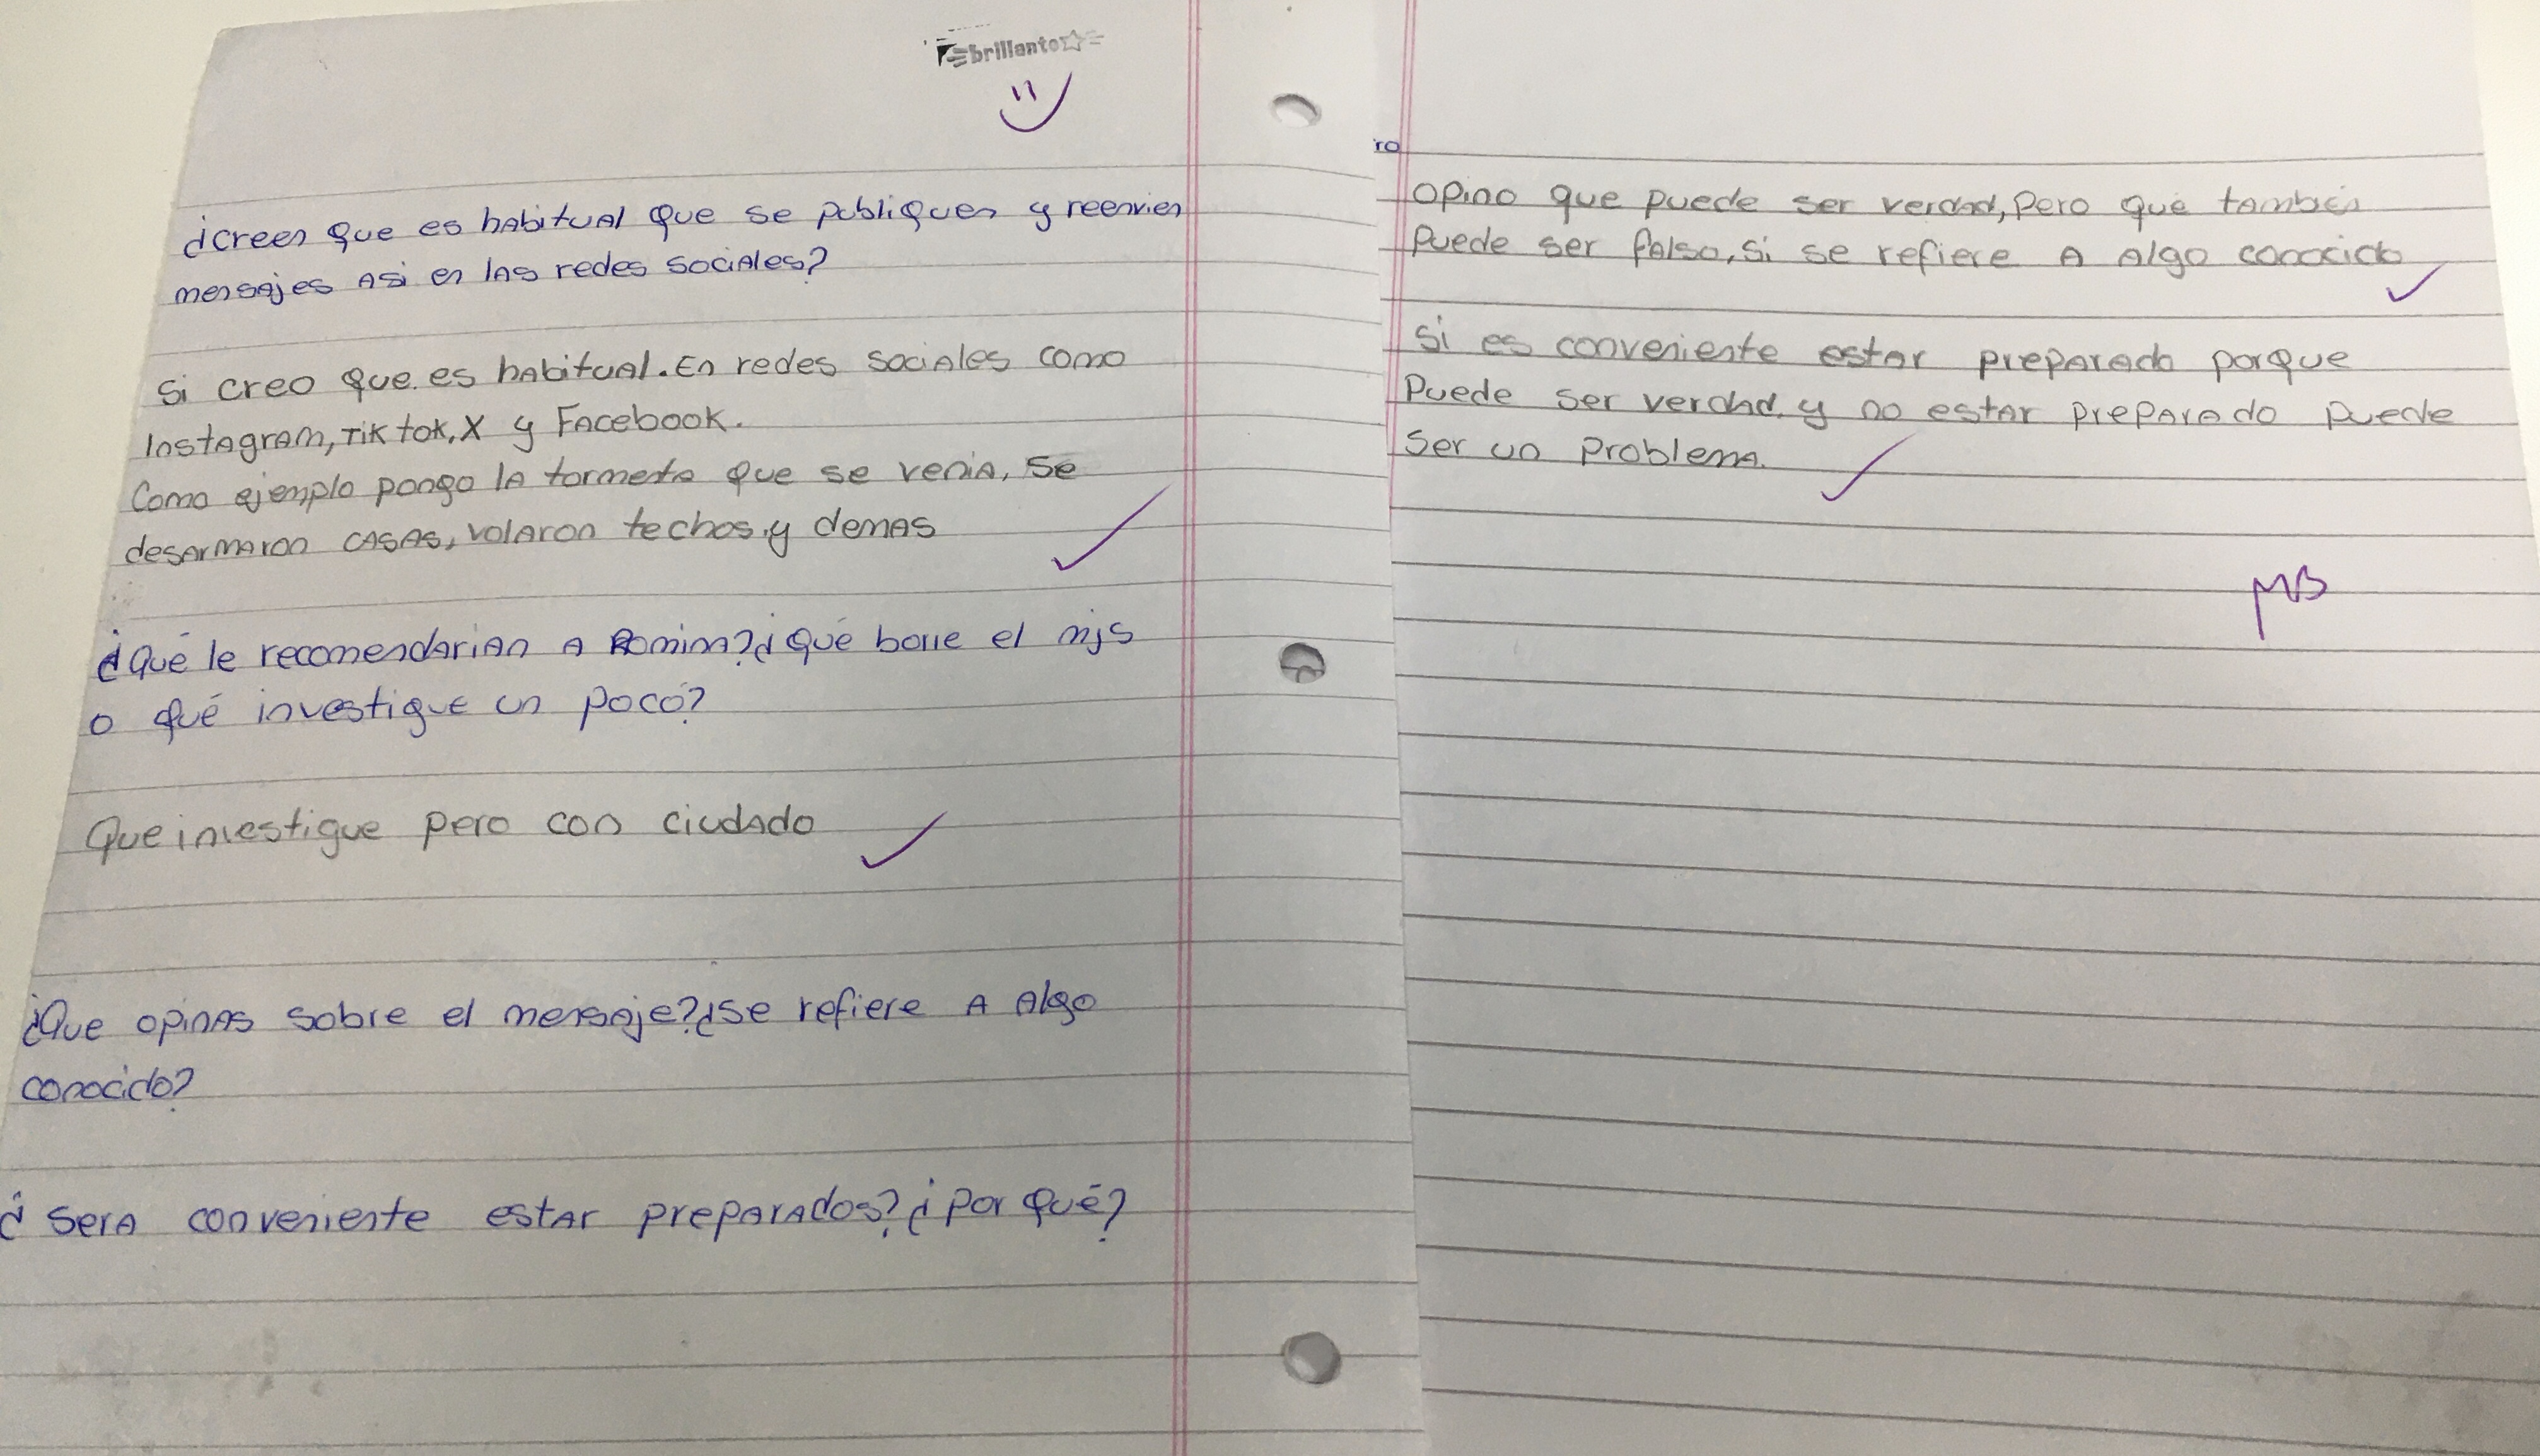 brillante
¿Creen que es habitual que se publiquen y reenvien
mensajes asi en las redes sociales?
Si creo que es habitual. En redes sociales como
Instagram, Tik tok, X y Facebook.
Como ejemplo pongo la tormenta que se venia, se
desarmaron casas, volaron techos y demas
¿Qué le recomendarian a Romina? ¿Qué borre el mjs
o qué investigue un poco?
Que investigue pero con ciudado
¿Que opinas sobre el mensaje? ¿Se refiere a algo
conocido?
¿Sera conveniente estar preparados? ¿Por qué?
ro
Opino que puede ser verdad, Pero que también
Puede ser falso, Si se refiere a algo conocido
Si es conveniente estar preparado porque
Puede ser verdad y no estar preparado puede
Ser un Problema.
MB